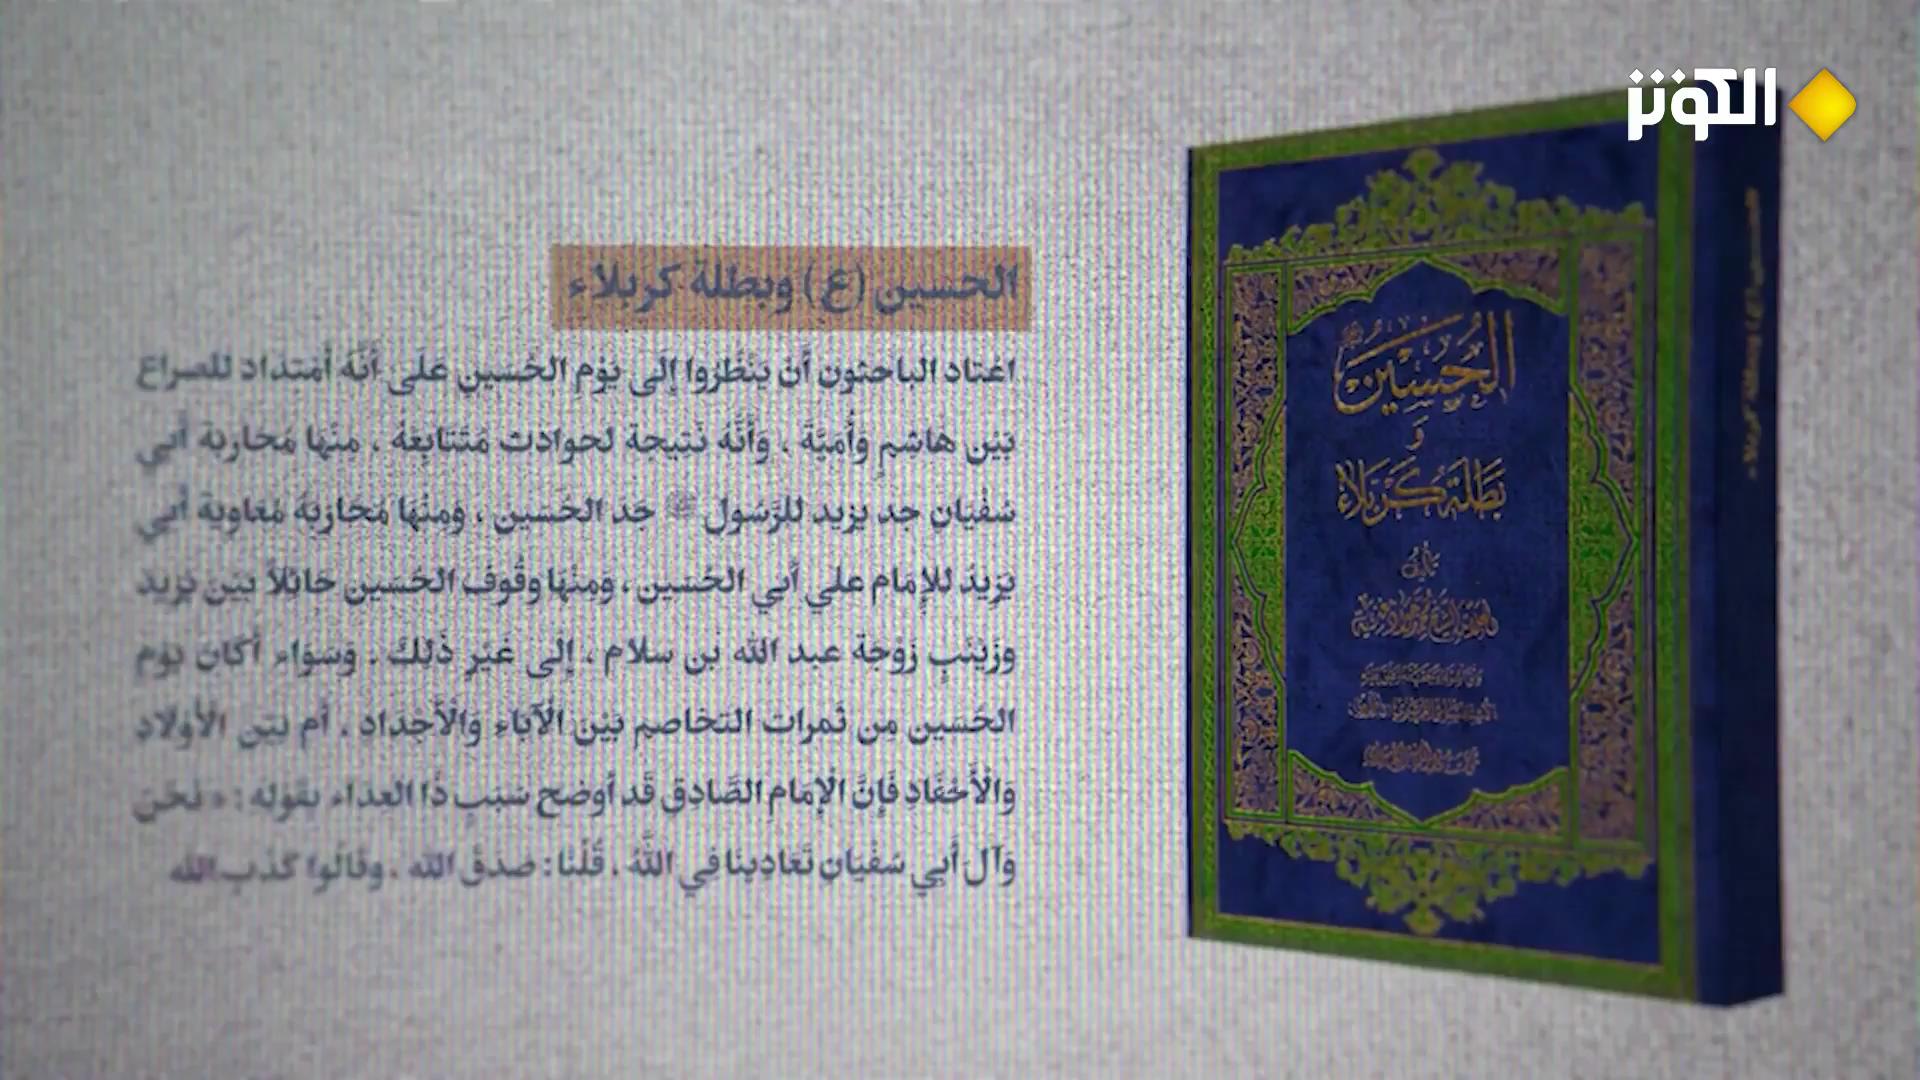 الكوثر
الحسين (ع) وبطلة كربلاء
اعْتاد الباحثون أَنْ يَنْظُرُوا إِلَى يَوْمِ الحُسَينِ عَلَى أَنَّهُ أمْتِداد للصراع
بَيْن هاشِمٍ وَأُمَيَّة ، وَأَنَّهُ نَتِيجة لحوادث مُتَتَابِعَة ، مِنْهَا مُحَاربة أبي
سُفْيَان جد يزيد للرَّسُول ﷺ جَد الحُسَين ، وَمِنْهَا مُحَارَبَة مُعَاوِيَة أبي
يَزِيدُ للإِمَام علي أَبي الحُسَين ، وَمِنْهَا وقُوف الحُسَين حَائلاً بَيْن يَزِيد
وَزَيْنَب زَوْجَة عبد الله بْن سلام ، إِلى غَيْرِ ذَلِكَ . وَسَوَاء أَكَانَ يَوْم
الحُسَين مِن ثَمرات التخاصم بَيْن الْآبَاء وَالْأَجْدَاد ، أَم بَيْن الْأَوْلَاد
وَالْأَحْفَادِ فَإِنَّ الْإمَام الصَّادِق قَد أوضح سَبَب ذَا العِدَاء بقَوله : « نَحْن
وَآل أَبِي سُفْيَان تَعَادِينا فِي اللَّهُ ، قُلْنَا : صدَقَ الله ، وقَالُوا كَذب الله
الحُسَين
و
بَطَلَة كَرْبَلاء
تأليف